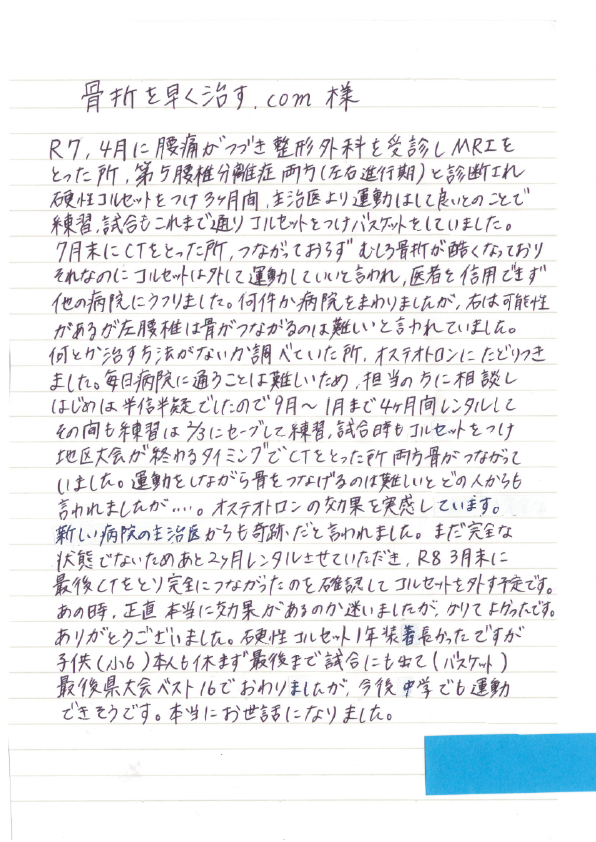 骨折を早く治す.com 様
R7, 4月に腰痛がつづき整形外科を受診しMRIを
とった所、第5腰椎分離症 両方(左右進行期)と診断され
硬性コルセットをつけ3ヶ月間、主治医より運動はして良いとのことで
練習、試合もこれまで通りコルセットをつけバスケットをしていました。
7月末にCTをとった所、つながっておらず むしろ骨折が酷くなっており
それなのにコルセットは外して運動していいと言われ、医者を信用できず
他の病院にうつりました。何件か病院をまわりましたが、右は可能性
があるが左腰椎は骨がつながるのは難しいと言われていました。
何とか治す方法がないか調べていた所、オステオトロンにたどりつき
ました。毎日病院に通うことは難しいため、担当の方に相談し
はじめは半信半疑でしたので9月〜1月まで4ヶ月間レンタルして
その間も練習は2/3にセーブして練習、試合時もコルセットをつけ
地区大会が終わるタイミングでCTをとった所 両方骨がつながって
いました。運動をしながら骨をつなげるのは難しいとどの人からも
言われましたが....。オステオトロンの効果を実感しています。
新しい病院の主治医からも奇跡だと言われました。まだ完全な
状態でないためあと2ヶ月レンタルさせていただき、R8 3月末に
最後CTをとり完全につながったのを確認してコルセットを外す予定です。
あの時、正直 本当に効果があるのか迷いましたが、かりてよかったです。
ありがとうございました。硬性コルセット1年装着長かったですが
子供(小6)本人も休まず最後まで試合にも出て(バスケット)
最後県大会ベスト16でおわりましたが、今後中学でも運動
できそうです。本当にお世話になりました。